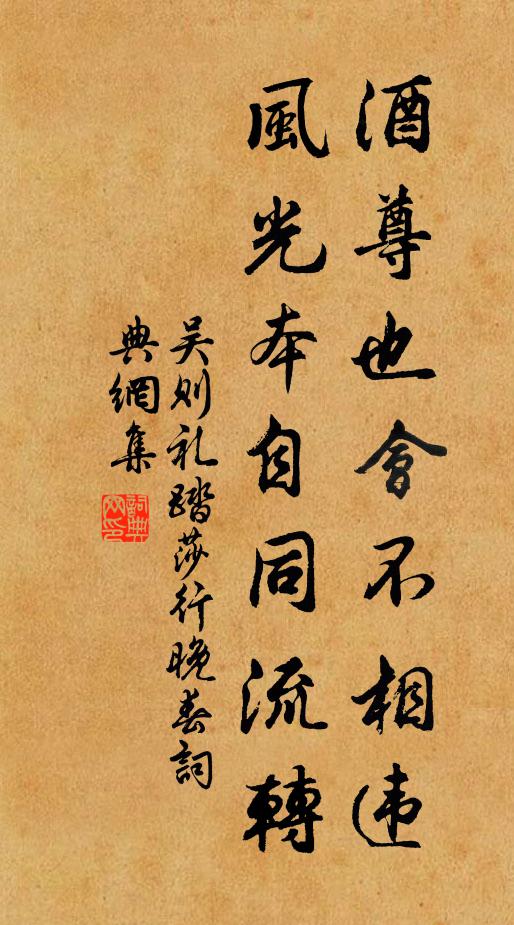 酒尊也會不相违
風光本自同流轉
吴则礼踏莎行晚春詞
典網集
詞典網印